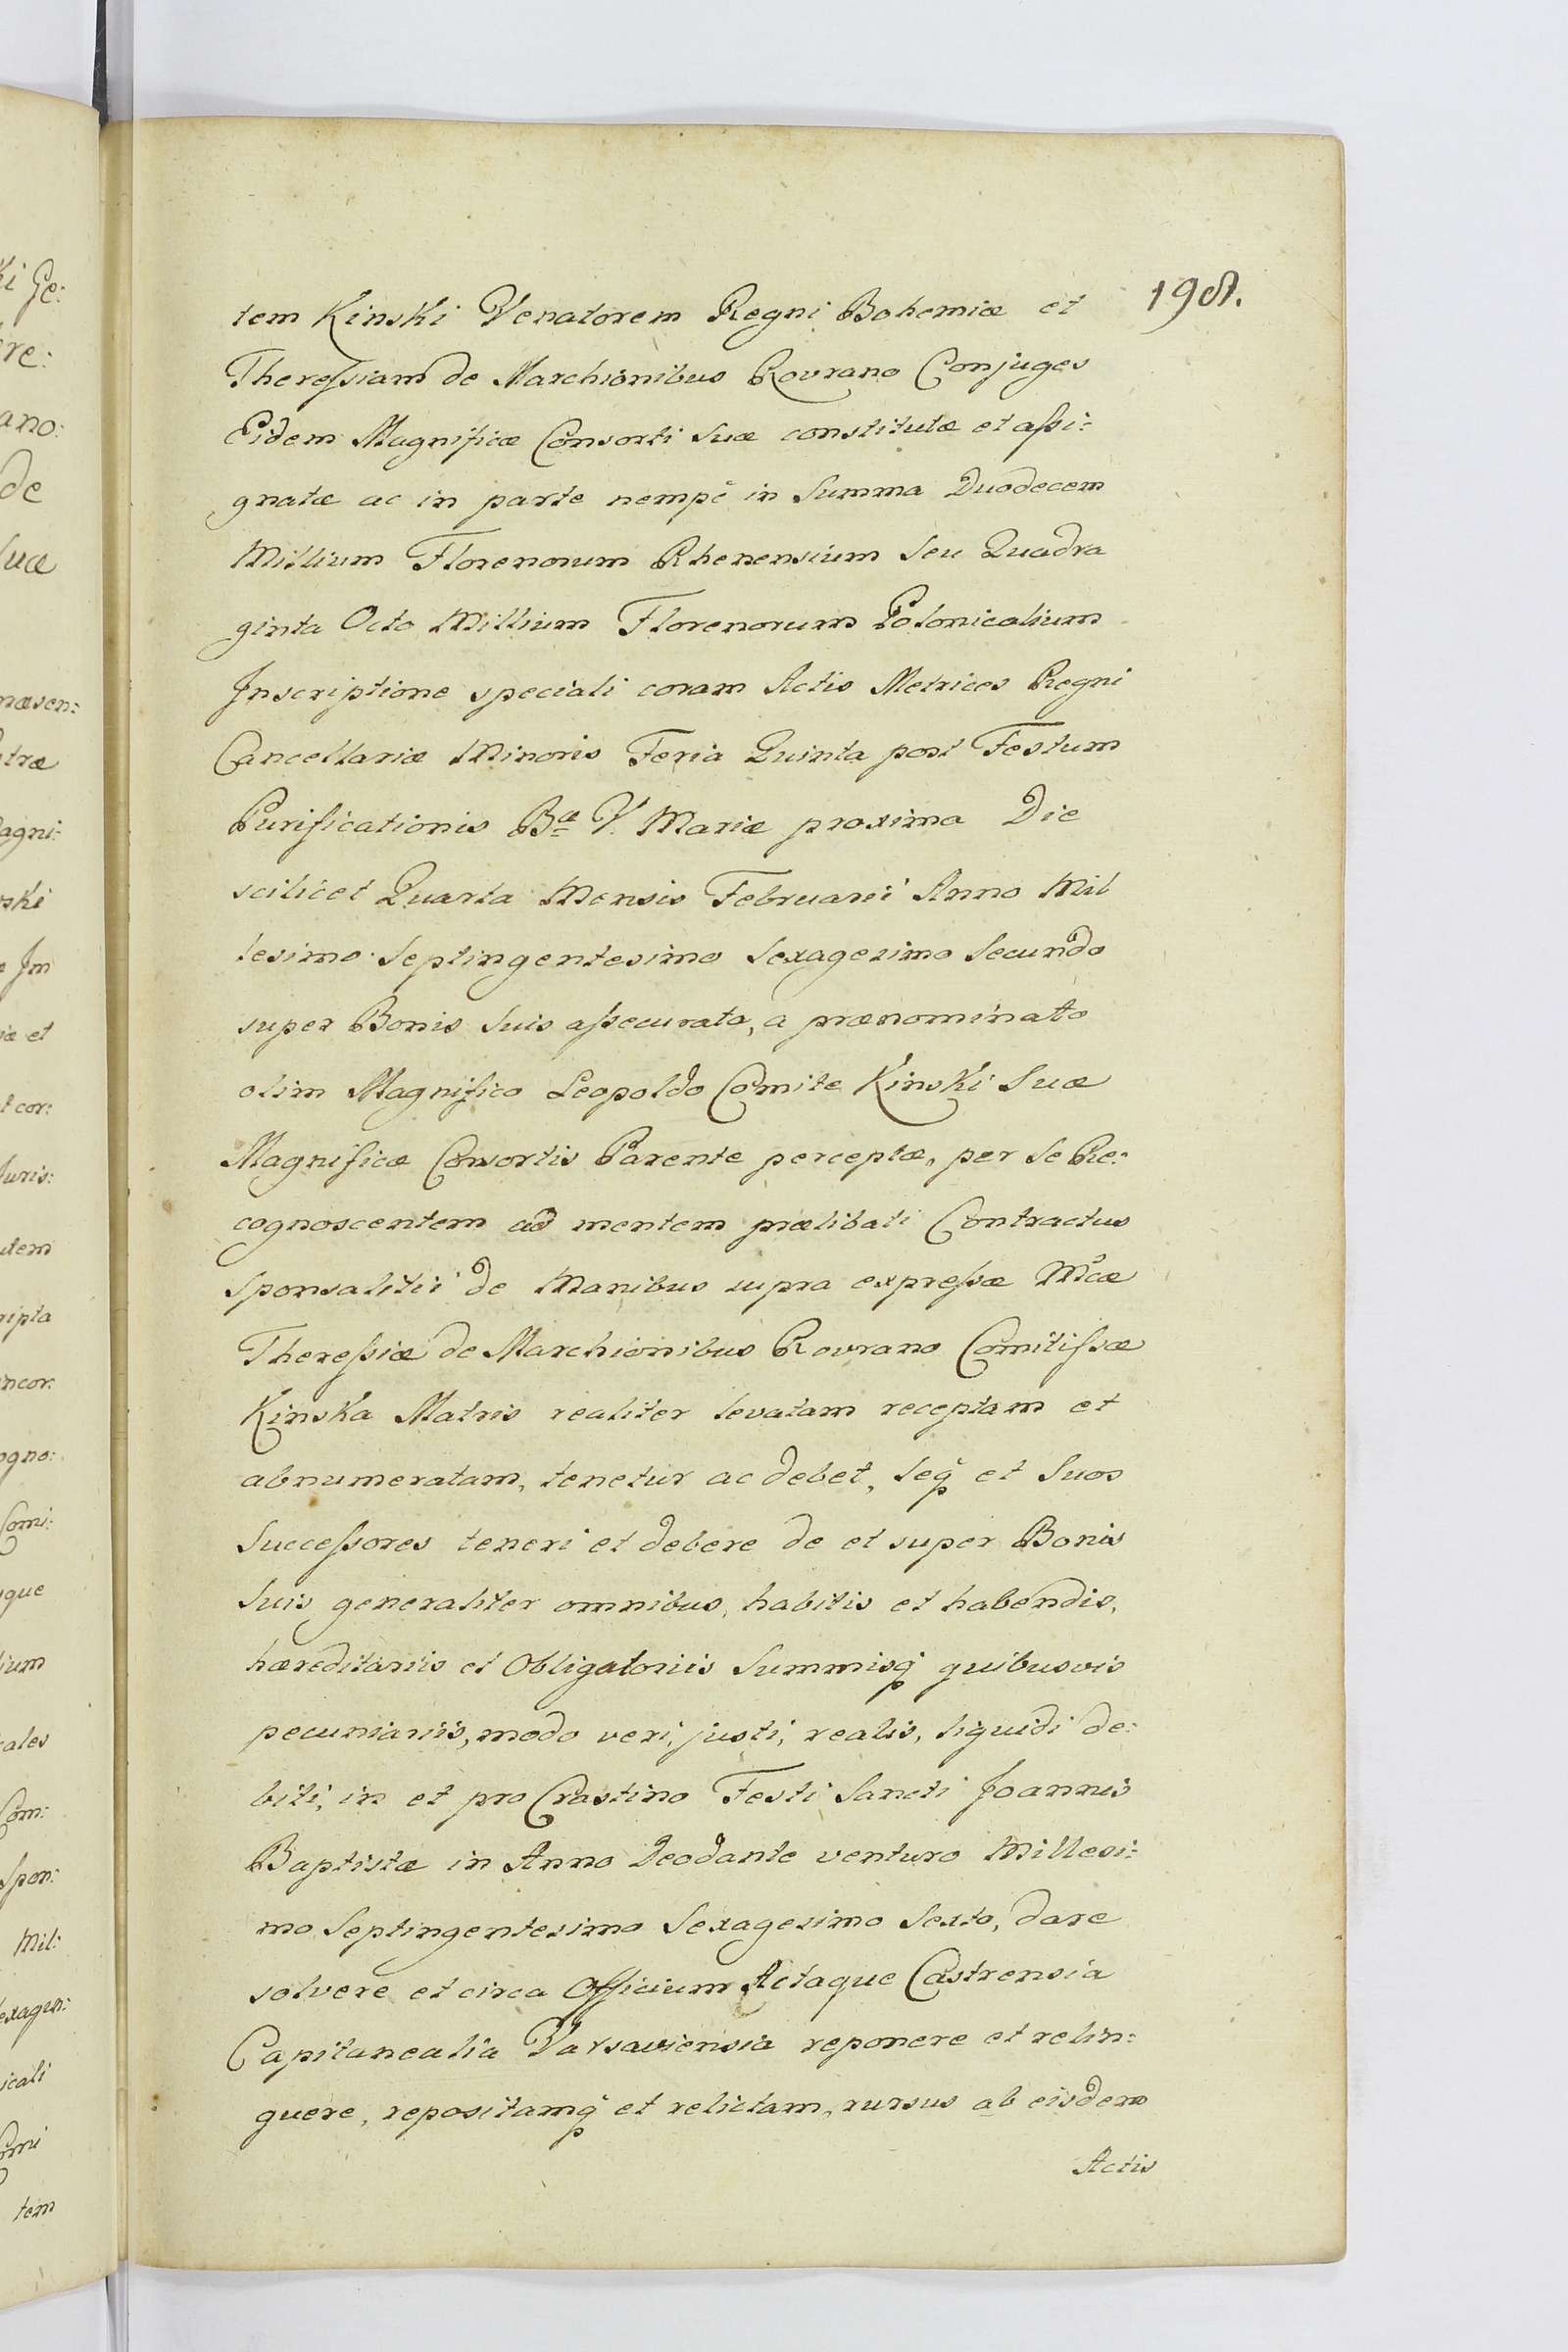 198.
tem Kinski Venatorem Regni Bohemiæ et
Thereſsiam de Marchionibus Rovrano Conjuges
Eidem Magnificæ Consorti Suæ constitutæ et aſsi:
gnatæ ac in parte nempè in Summa Duodecem
Millium Florenorum Rhenensium Seu Quadra
ginta Octo Millium Florenorum Polonicalium
Inscriptione speciali coram Actis Metrices Regni
Cancellariæ Minoris Feria Quinta post Festum
Purificationis Bæ V. Mariæ proxima Die
scilicet Quarta Mensis Februarii Anno Mil
lesimo Septingentesimo Sexagesimo Secundo
super Bonis Suis aſsecurata, a prænominato
olim Magnifico Leopoldo Comite Kinski Suæ
Magnificæ Consortis Parente perceptæ, per Se Re:
cognoscentem ad mentem prælibati Contractus
Sponsalitii de Manibus supra expreſsæ Mcæ
Thereſsiæ de Marchionibus Rovrano Comitiſsæ
Kinska Matris realiter levatam receptam et
abnumeratam, tenetur ac debet, Seq̃ et Suos
Succeſsores teneri et debere de et super Bonis
Suis generaliter omnibus, habitis et habendis,
hæreditariis et Obligatoriis Summisq̃ quibusvis
pecuniariis, modo veri, justi, realis, liquidi de:
biti, in et pro Crastino Festi Sancti Joannis
Baptistæ in Anno Deodante venturo Millesi:
mo Septingentesimo Sexagesimo Sexto, dare
solvere et circa Officium Actaque Castrensia
Capitanealia Varsaviensia reponere et relin:
quere, repositamq̃ et relictam, rursus ab eisdem
Actis